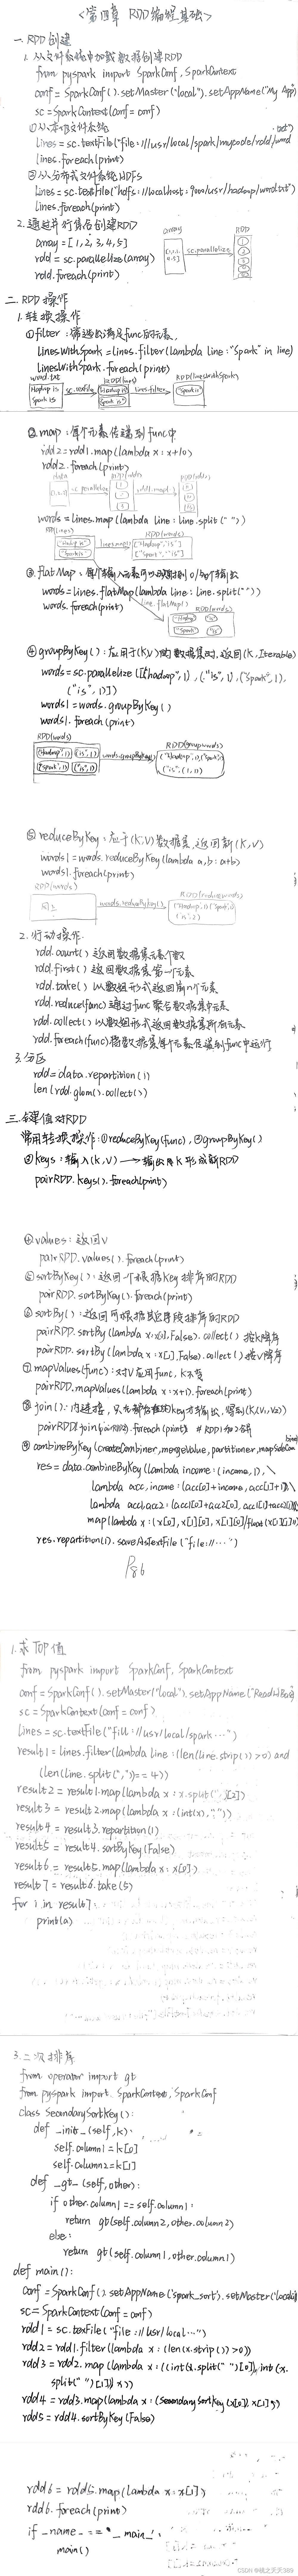 <第四章 RDD编程基础>
一. RDD创建
1. 从文件系统中加载数据创建RDD
from pyspark import SparkConf, SparkContext
conf = SparkConf().setMaster("local").setAppName("My App")
sc = SparkContext(conf = conf)
①从本地文件系统
lines = sc.textFile("file:///usr/local/spark/mycode/rdd/word.txt")
lines.foreach(print)
②从分布式文件系统HDFS
lines = sc.textFile("hdfs://localhost:9000/usr/hadoop/word.txt")
lines.foreach(print)
2. 通过并行集合创建RDD
array = [1, 2, 3, 4, 5]
rdd = sc.parallelize(array)
rdd.foreach(print)
array
sc.parallelize
RDD
二. RDD操作
1. 转换操作
①filter:筛选出满足func的元素,
linesWithSpark = lines.filter(lambda line: "Spark" in line)
linesWithSpark.foreach(print)
word.txt
Hadoop is
Spark is
sc.textFile
RDD(lines)
lines.filter
RDD(linesWithSpark)
②map:每个元素传递到func中
rdd2 = rdd1.map(lambda x: x+10)
rdd2.foreach(print)
words = lines.map(lambda line: line.split(" "))
RDD(words)
③flatMap:每个输入元素可以映射到0/多个输出
words = lines.flatMap(lambda line: line.split(" "))
words.foreach(print)
line.flatMap()
RDD(words)
④groupByKey():应用于(K,V)的数据集时,返回(K, Iterable)
words = sc.parallelize([("hadoop", 1), ("is", 1), ("spark", 1),
("is", 1)])
words1 = words.groupByKey()
words1.foreach(print)
RDD(words)
("Hadoop",1) ("is",1)
("Spark",1) ("is",1)
words.groupByKey()
RDD(groupwords)
("is", (1,1))
⑤reduceByKey:应于(K,V)数据集,返回新(K,V)
words1 = words.reduceByKey(lambda a, b: a+b)
words1.foreach(print)
RDD(words)
同上
words.reduceByKey()
2. 行动操作
rdd.count() 返回数据集元素个数
rdd.first() 返回数据集第一个元素
rdd.take() 以数组形式返回前n个元素
rdd.reduce(func) 通过func聚合数据集中元素
rdd.collect() 以数组形式返回数据集所有元素
rdd.foreach(func) 将数据集每个元素传递到func中运行
3. 分区
rdd = data.repartition(1)
len(rdd.glom().collect())
三. 键值对RDD
常用转换操作:①reduceByKey(func), ②groupByKey()
③keys:输入(k,v) → 输出将K形成新RDD
pairRDD.keys().foreach(print)
④values:返回V
pairRDD.values().foreach(print)
⑤sortByKey():返回一个根据Key排序的RDD
pairRDD.sortByKey().foreach(print)
⑥sortBy():返回可根据其它字段排序的RDD
pairRDD.sortBy(lambda x: x[0], False).collect() 按K降序
pairRDD.sortBy(lambda x: x[1], False).collect() 按V降序
⑦mapValues(func):对V应用func,K不变
pairRDD.mapValues(lambda x: x+1).foreach(print)
⑧join():内连接,只有都存在的key才输出,得到(K,(V1,V2))
⑨combineByKey(createCombiner, mergeValue, partitioner, mapSideCom
res = data.combineByKey(lambda income: (income, 1), \
lambda acc, income: (acc[0]+income, acc[1]+1), \
lambda acc1, acc2: (acc1[0]+acc2[0], acc1[1]+acc2[1])).
map(lambda x: (x[0], x[1][0], x[1][0]/float(x[1][1])))
res.repartition(1).saveAsTextFile("file://…")
P86
1. 求TOP值
from pyspark import SparkConf, SparkContext
conf = SparkConf().setMaster("local").setAppName("ReadHBase")
sc = SparkContext(conf = conf)
lines = sc.textFile("fill://usr/local/spark…")
result1 = lines.filter(lambda line: (len(line.strip()) > 0) and
(len(line.split(",")) == 4))
result2 = result1.map(lambda x: x.split(",")[2])
result3 = result2.map(lambda x: (int(x), ""))
result4 = result3.repartition(1)
result5 = result4.sortByKey(False)
result6 = result5.map(lambda x: x[0])
result7 = result6.take(5)
for i in result7:
print(a)
3. 二次排序
from operator import gt
from pyspark import SparkContext, SparkConf
class SecondarySortKey():
def _init_(self, k):
self.column1 = k[0]
self.column2 = k[1]
def _gt_(self, other):
if other.column1 == self.column1:
return gt(self.column2, other.column2)
else:
return gt(self.column1, other.column1)
def main():
conf = SparkConf().setAppName('spark_sort').setMaster('local')
sc = SparkContext(conf = conf)
rdd1 = sc.texFile("file://usr/local…")
rdd2 = rdd1.filter(lambda x: (len(x.strip()) > 0))
rdd3 = rdd2.map(lambda x: ((int(x.split(" ")[0]), int(x.
split(" ")[1])), x))
rdd4 = rdd3.map(lambda x: (SecondarySortKey(x[0]), x[1]))
rdd5 = rdd4.sortByKey(False)
rdd6 = rdd5.map(lambda x: x[1])
rdd6.foreach(print)
if _name_ == '_main_':
main()